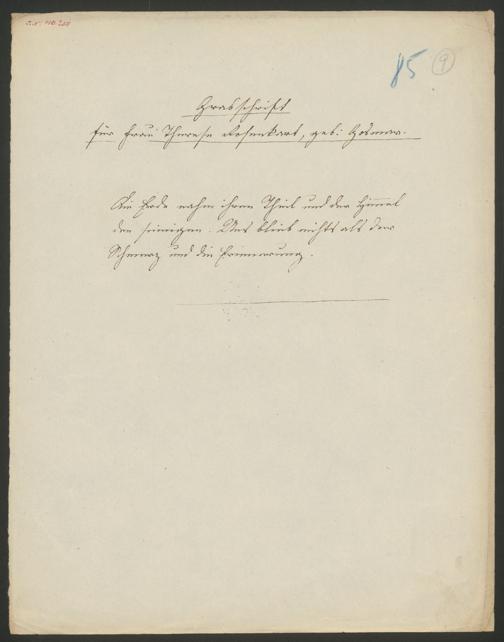 85 9
Grabschrift
für Frau Therese Rosenkart, geb: Gosmar.
Die Erde nahm ihren Theil und der Himmel
den seinigen. Uns blieb nichts als der
Schmerz und die Erinnerung.